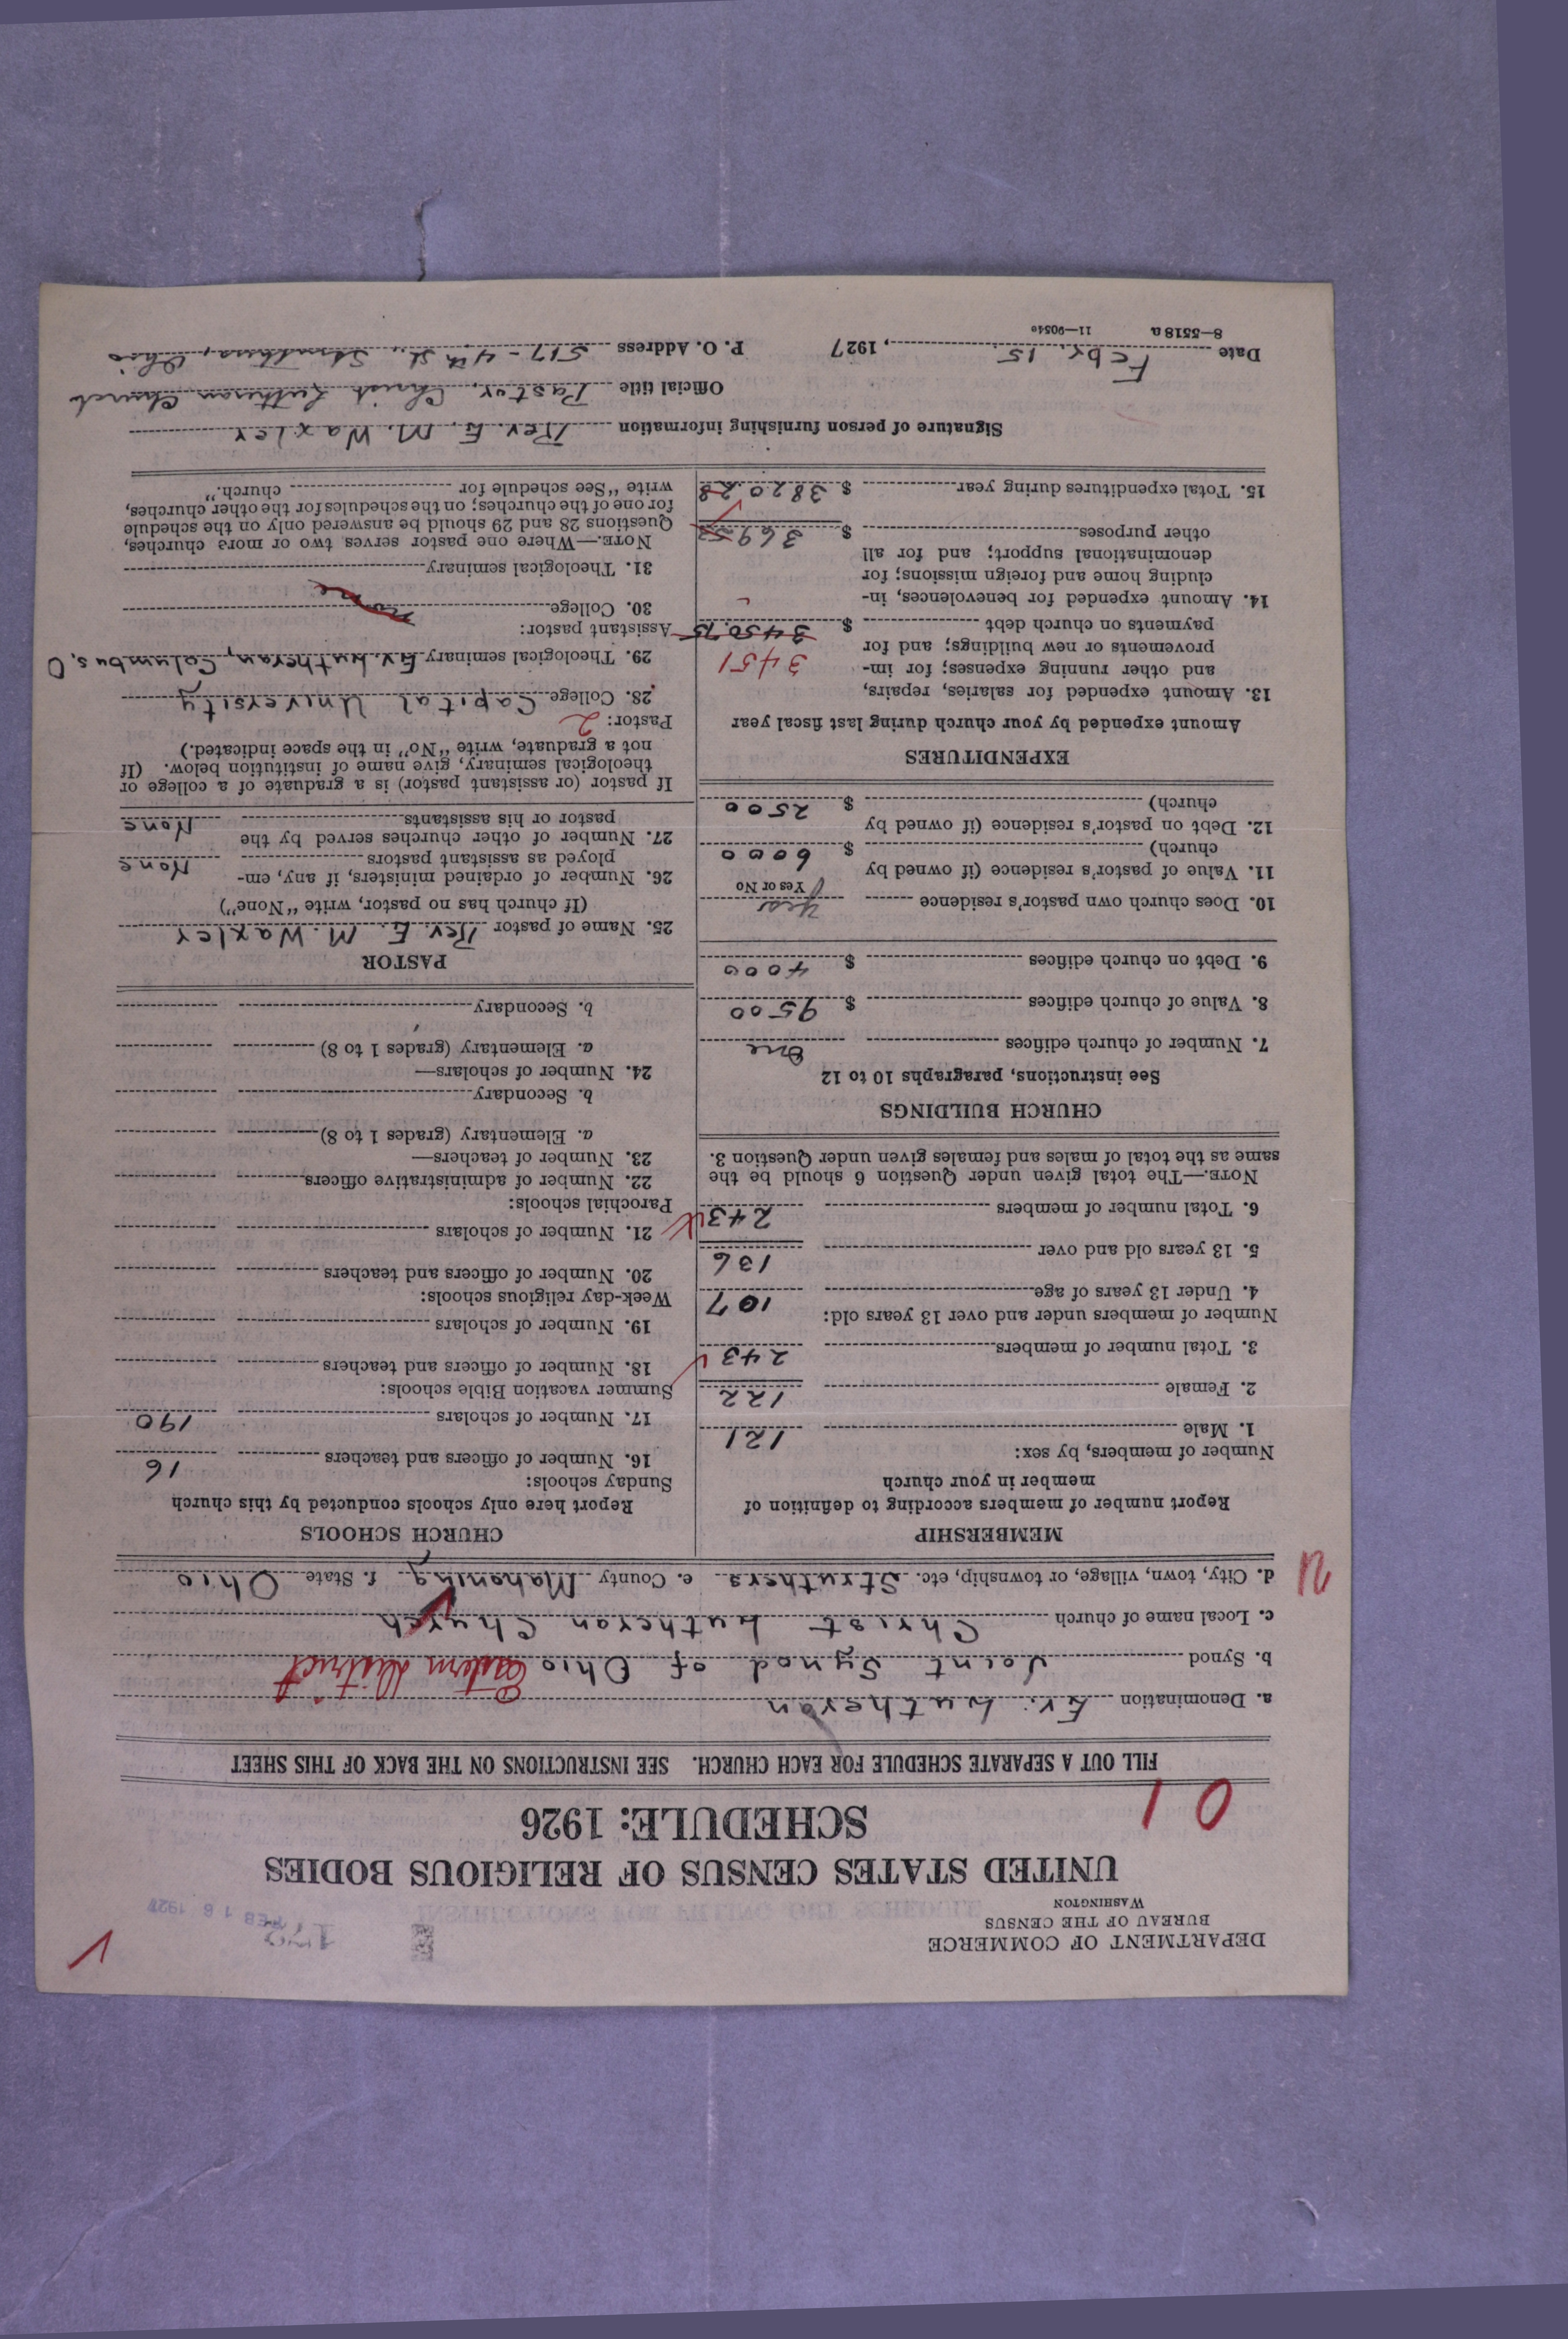 DEPARTMENT OF COMMERCE
BUREAU OF THE CENSUS
WASHINGTON
FEB 18 1927
UNITED STATES CENSUS OF RELIGIOUS BODIES
SCHEDULE: 1926
01
FILL OUT A SEPARATE SCHEDULE FOR EACH CHURCH. SEE INSTRUCTIONS ON THE BACK OF THIS SHEET
a. Denomination Ev. Lutheran
b. Synod Joint Synod of Ohio Eastern District
c. Local name of church Christ Lutheran Church
d. City, town, village, or township, etc. Struthers e. County Mahoning f. State Ohio
MEMBERSHIP
Report number of members according to definition of
member in your church
Number of members, by sex:
1. Male 121
2. Female 122
3. Total number of members 243
Number of members under and over 13 years old:
4. Under 13 years of age 107
5. 13 years old and over 136
6. Total number of members 243
NOTE.—The total given under Question 6 should be the
same as the total of males and females given under Question 3.
CHURCH BUILDINGS
See instructions, paragraphs 10 to 12
7. Number of church edifices One
8. Value of church edifices $ 9500
9. Debt on church edifices $ 4000
10. Does church own pastor's residence Yes
Yes or No
11. Value of pastor's residence (if owned by
church) $ 6000
12. Debt on pastor's residence (if owned by
church) $ 2500
EXPENDITURES
Amount expended by your church during last fiscal year
13. Amount expended for salaries, repairs,
and other running expenses; for im-
provements or new buildings; and for
payments on church debt $ 3450.75
3451
14. Amount expended for benevolences, in-
cluding home and foreign missions; for
denominational support; and for all
other purposes $ 369.53
15. Total expenditures during year $ 3820.28
CHURCH SCHOOLS
Report here only schools conducted by this church
Sunday schools:
16. Number of officers and teachers 16
17. Number of scholars 190
Summer vacation Bible schools:
18. Number of officers and teachers
19. Number of scholars
Week-day religious schools:
20. Number of officers and teachers
21. Number of scholars
Parochial schools:
22. Number of administrative officers
23. Number of teachers—
a. Elementary (grades 1 to 8)
b. Secondary
24. Number of scholars—
a. Elementary (grades 1 to 8)
b. Secondary
PASTOR
25. Name of pastor Rev. E. M. Waxler
(If church has no pastor, write "None")
26. Number of ordained ministers, if any, em-
ployed as assistant pastors None
27. Number of other churches served by the
pastor or his assistants None
If pastor (or assistant pastor) is a graduate of a college or
theological seminary, give name of institution below. (If
not a graduate, write "No" in the space indicated.)
Pastor: 2
28. College Capital University
29. Theological seminary Ev. Lutheran, Columbus, O
Assistant pastor:
30. College none
31. Theological seminary
NOTE.—Where one pastor serves two or more churches,
Questions 28 and 29 should be answered only on the schedule
for one of the churches; on the schedules for the other churches,
write "See schedule for church."
Signature of person furnishing information Rev. E. M. Waxler
Official title Pastor, Christ Lutheran Church
Date Febr. 15, 1927 P. O. Address 517 - 4th St., Struthers, Ohio
8—5518a 11—9054e